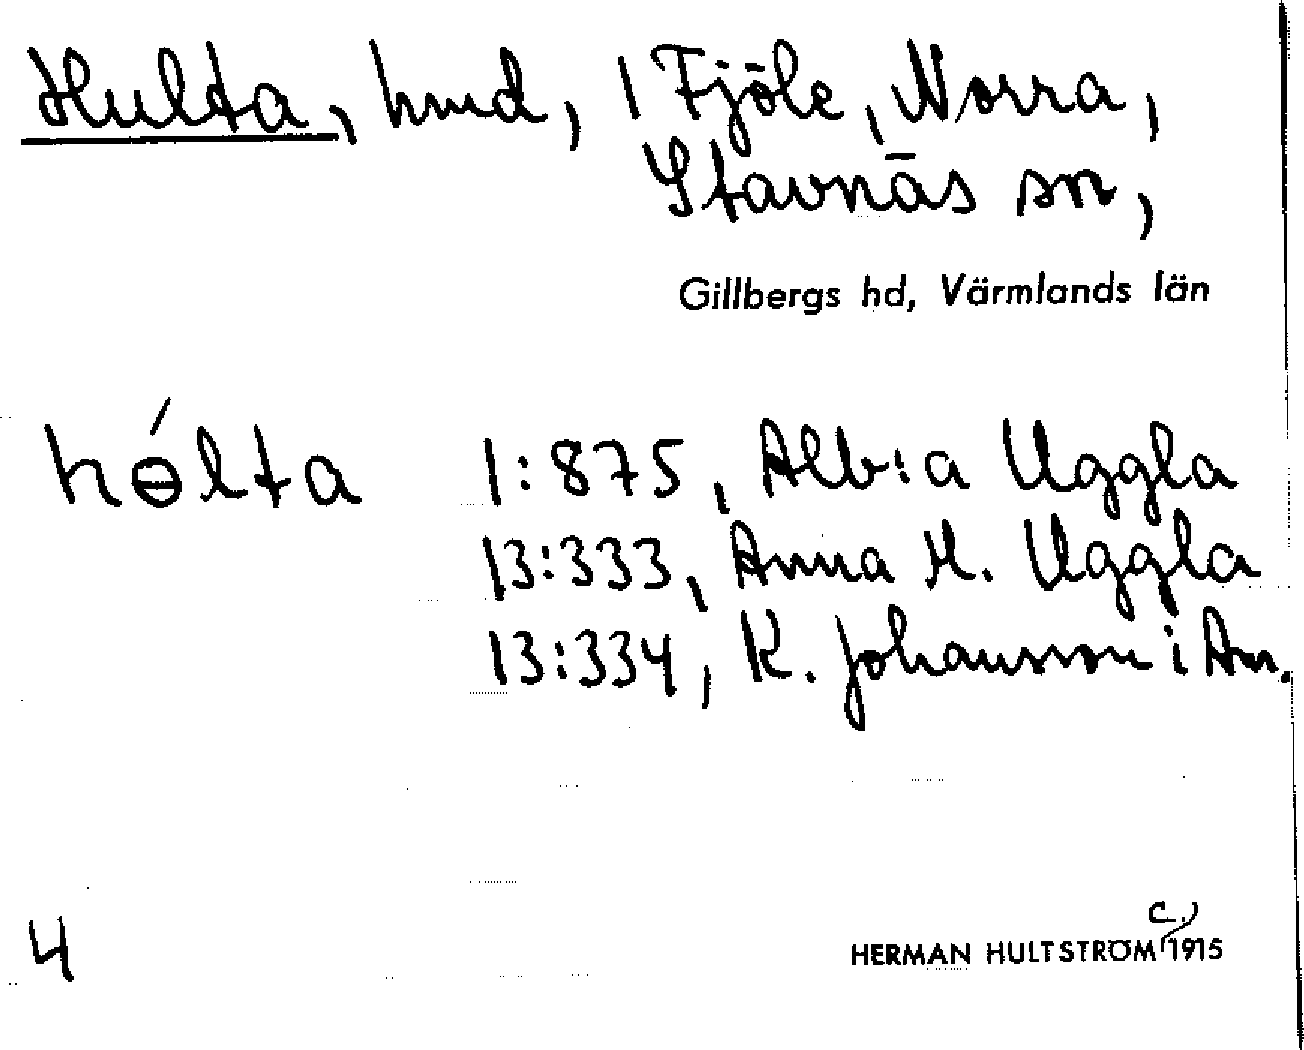 Hulta, hmd, 1 Fjöle, Norra,
Stavnäs sn,
Gillbergs hd, Värmlands län
hɵ́lta 1:875, Alb:a Uggla
13:333, Anna M. Uggla
13:334, K. Johansson i Am.
c.
4 HERMAN HULTSTRÖM 1915